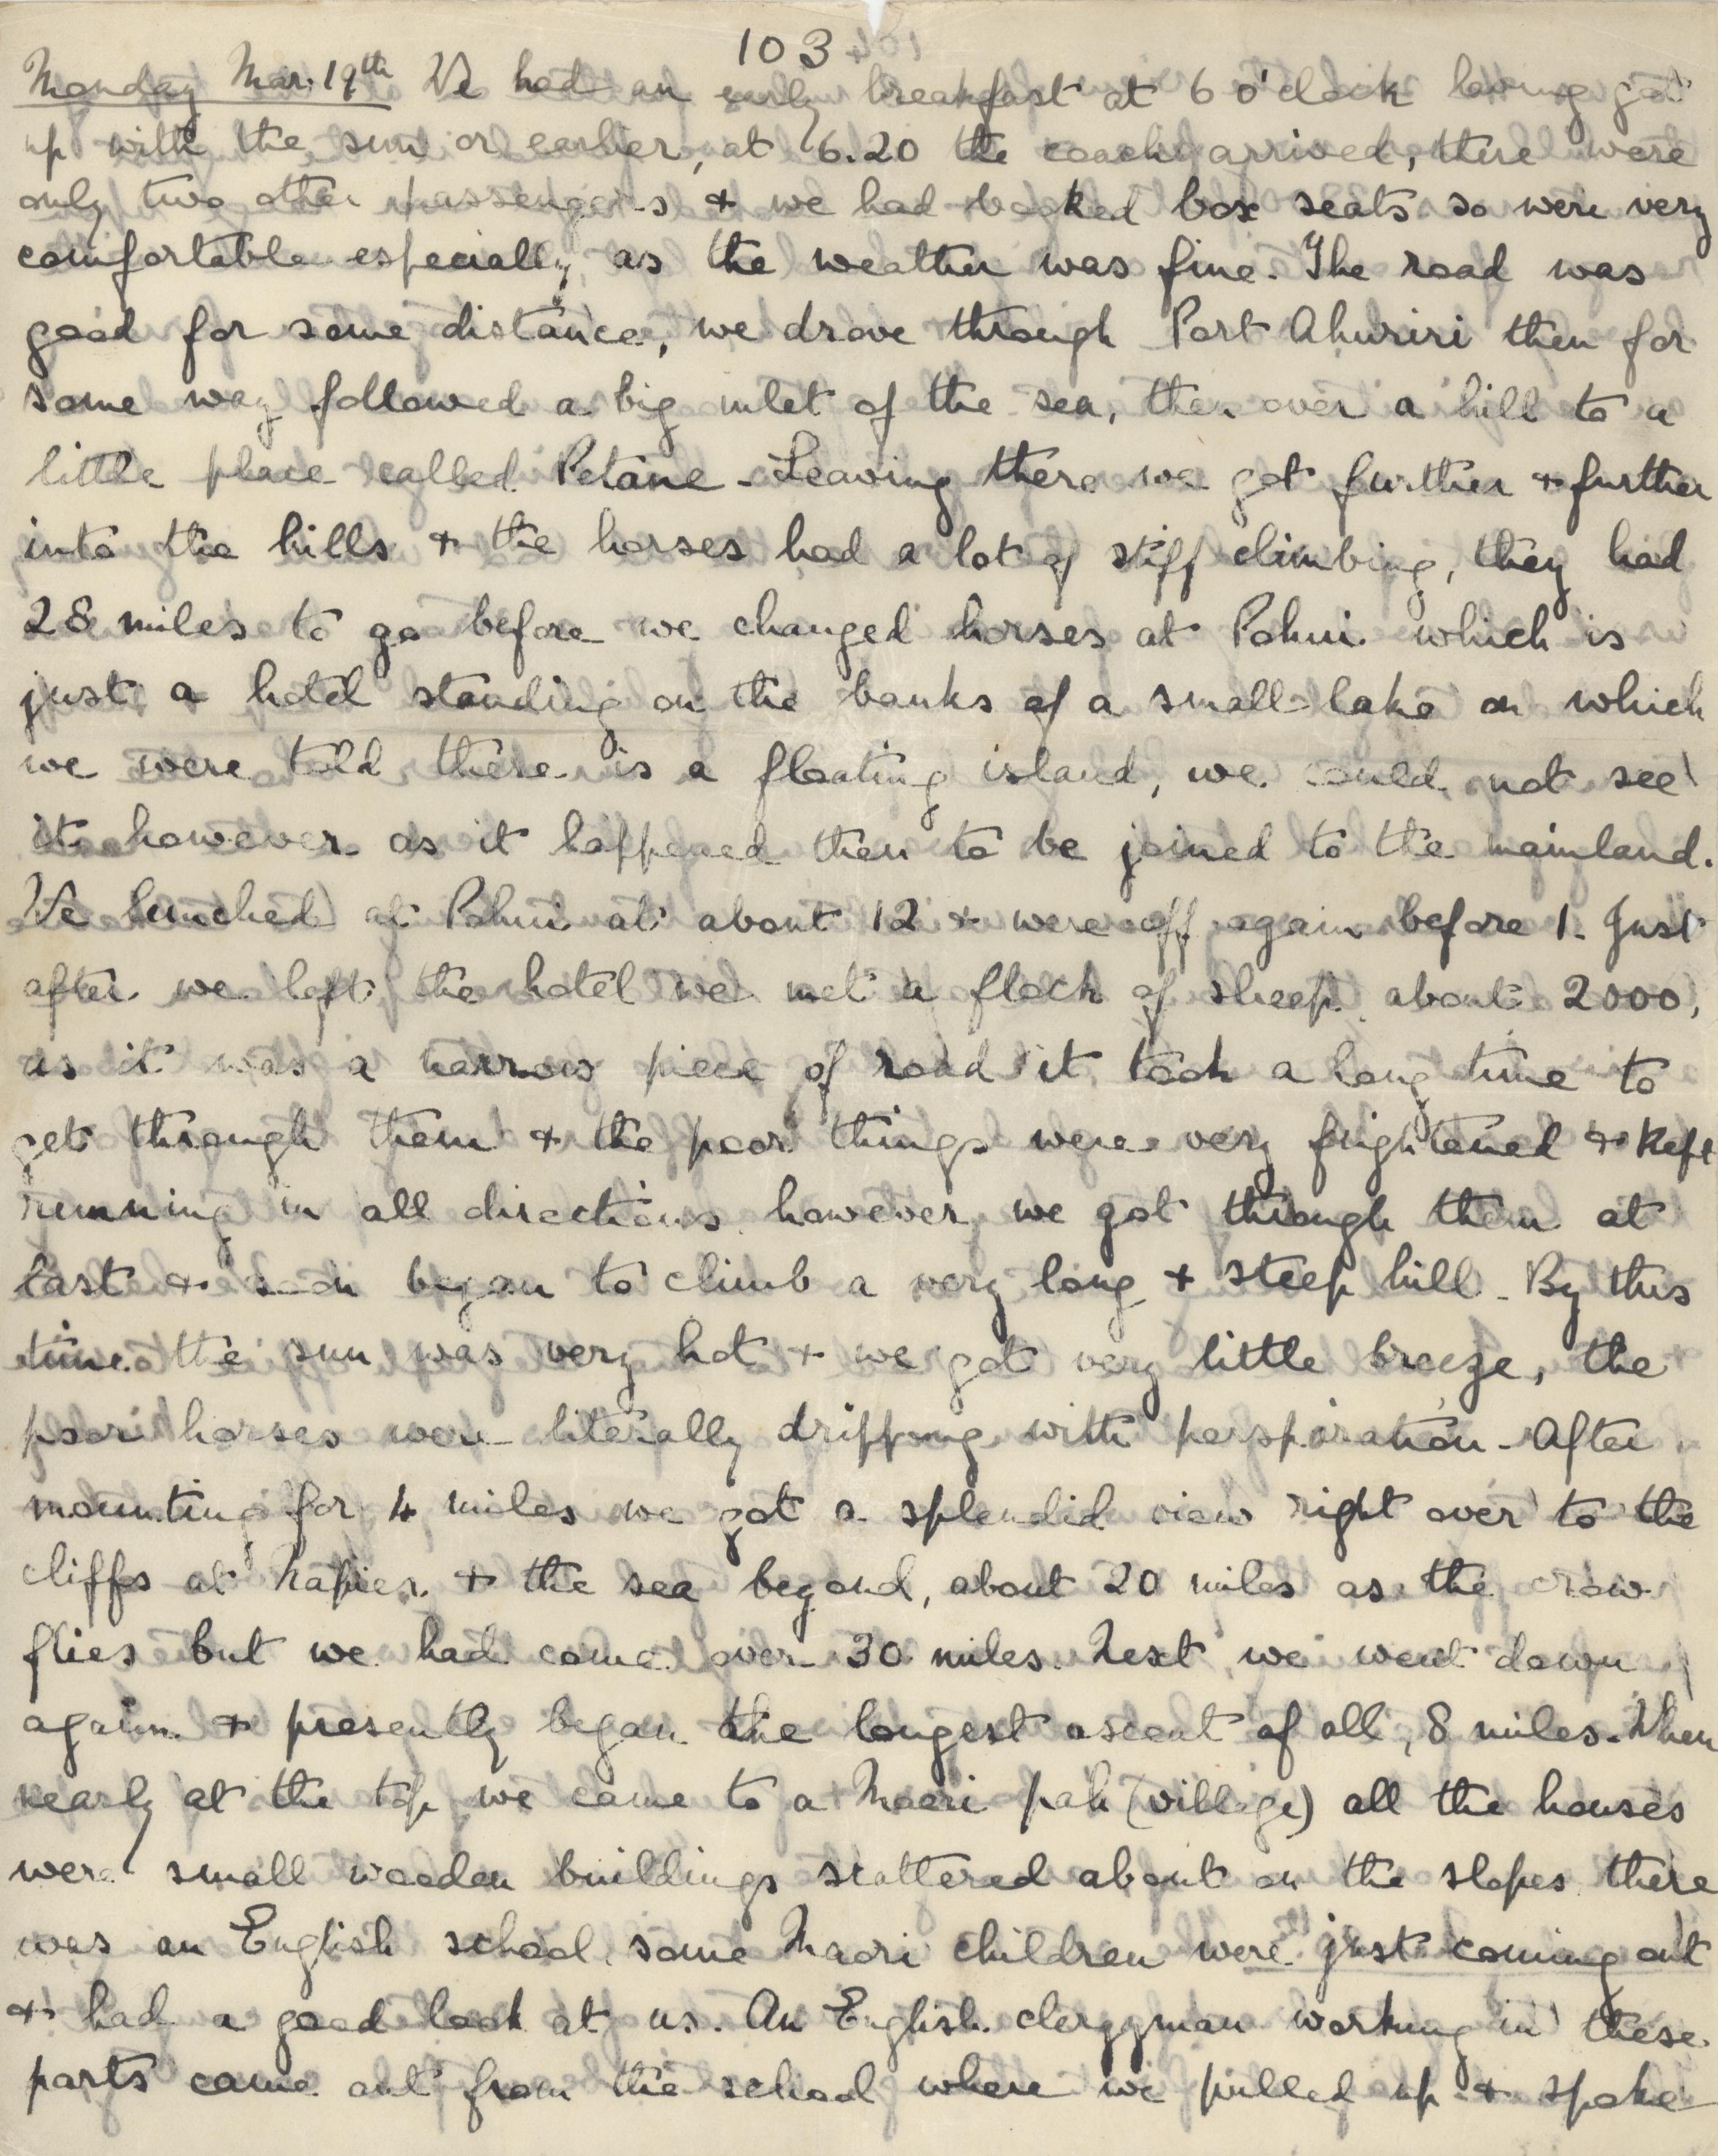 103
Monday Mar. 19th We had an early breakfast at 6 o'clock having got
up with the sun or earlier, at 6.20 the coach arrived, there were
only two other passengers & we had booked box seats so were very
comfortable especially as the weather was fine. The road was
good for some distance, we drove through Port Ahuriri then for
some way followed a big inlet of the sea, then over a hill to a
little place called Petane - Leaving there we got further & further
into the hills & the horses had a lot of stiff climbing, they had
28 miles to go before we changed horses at Pohui which is
just a hotel standing on the banks of a small lake on which
we were told there is a floating island, we could not see
it however as it happened then to be joined to the mainland.
We lunched at Pohui at about 12 & were off again before 1. Just
after we left the hotel we met a flock of sheep, about 2000,
as it was a narrow piece of road it took a long time to
get through them & the poor things were very frightened & kept
running in all directions however, we got through them at
last & soon began to climb a very long & steep hill. By this
time the sun was very hot & we got very little breeze, the
poor horses were literally dripping with perspiration - After
mounting for 4 miles we got a splendid view right over to the
cliffs at Napier & the sea beyond, about 20 miles as the crow
flies but we had come over 30 miles. Next we went down
again & presently began the longest ascent of all, 8 miles. When
nearly at the top we came to a Maori pah (village) all the houses
were small wooden buildings scattered about on the slopes there
was an English school, some Maori children were just coming out
& had a good look at us. An English clergyman working in these
parts came out from the school where we pulled up & spoke